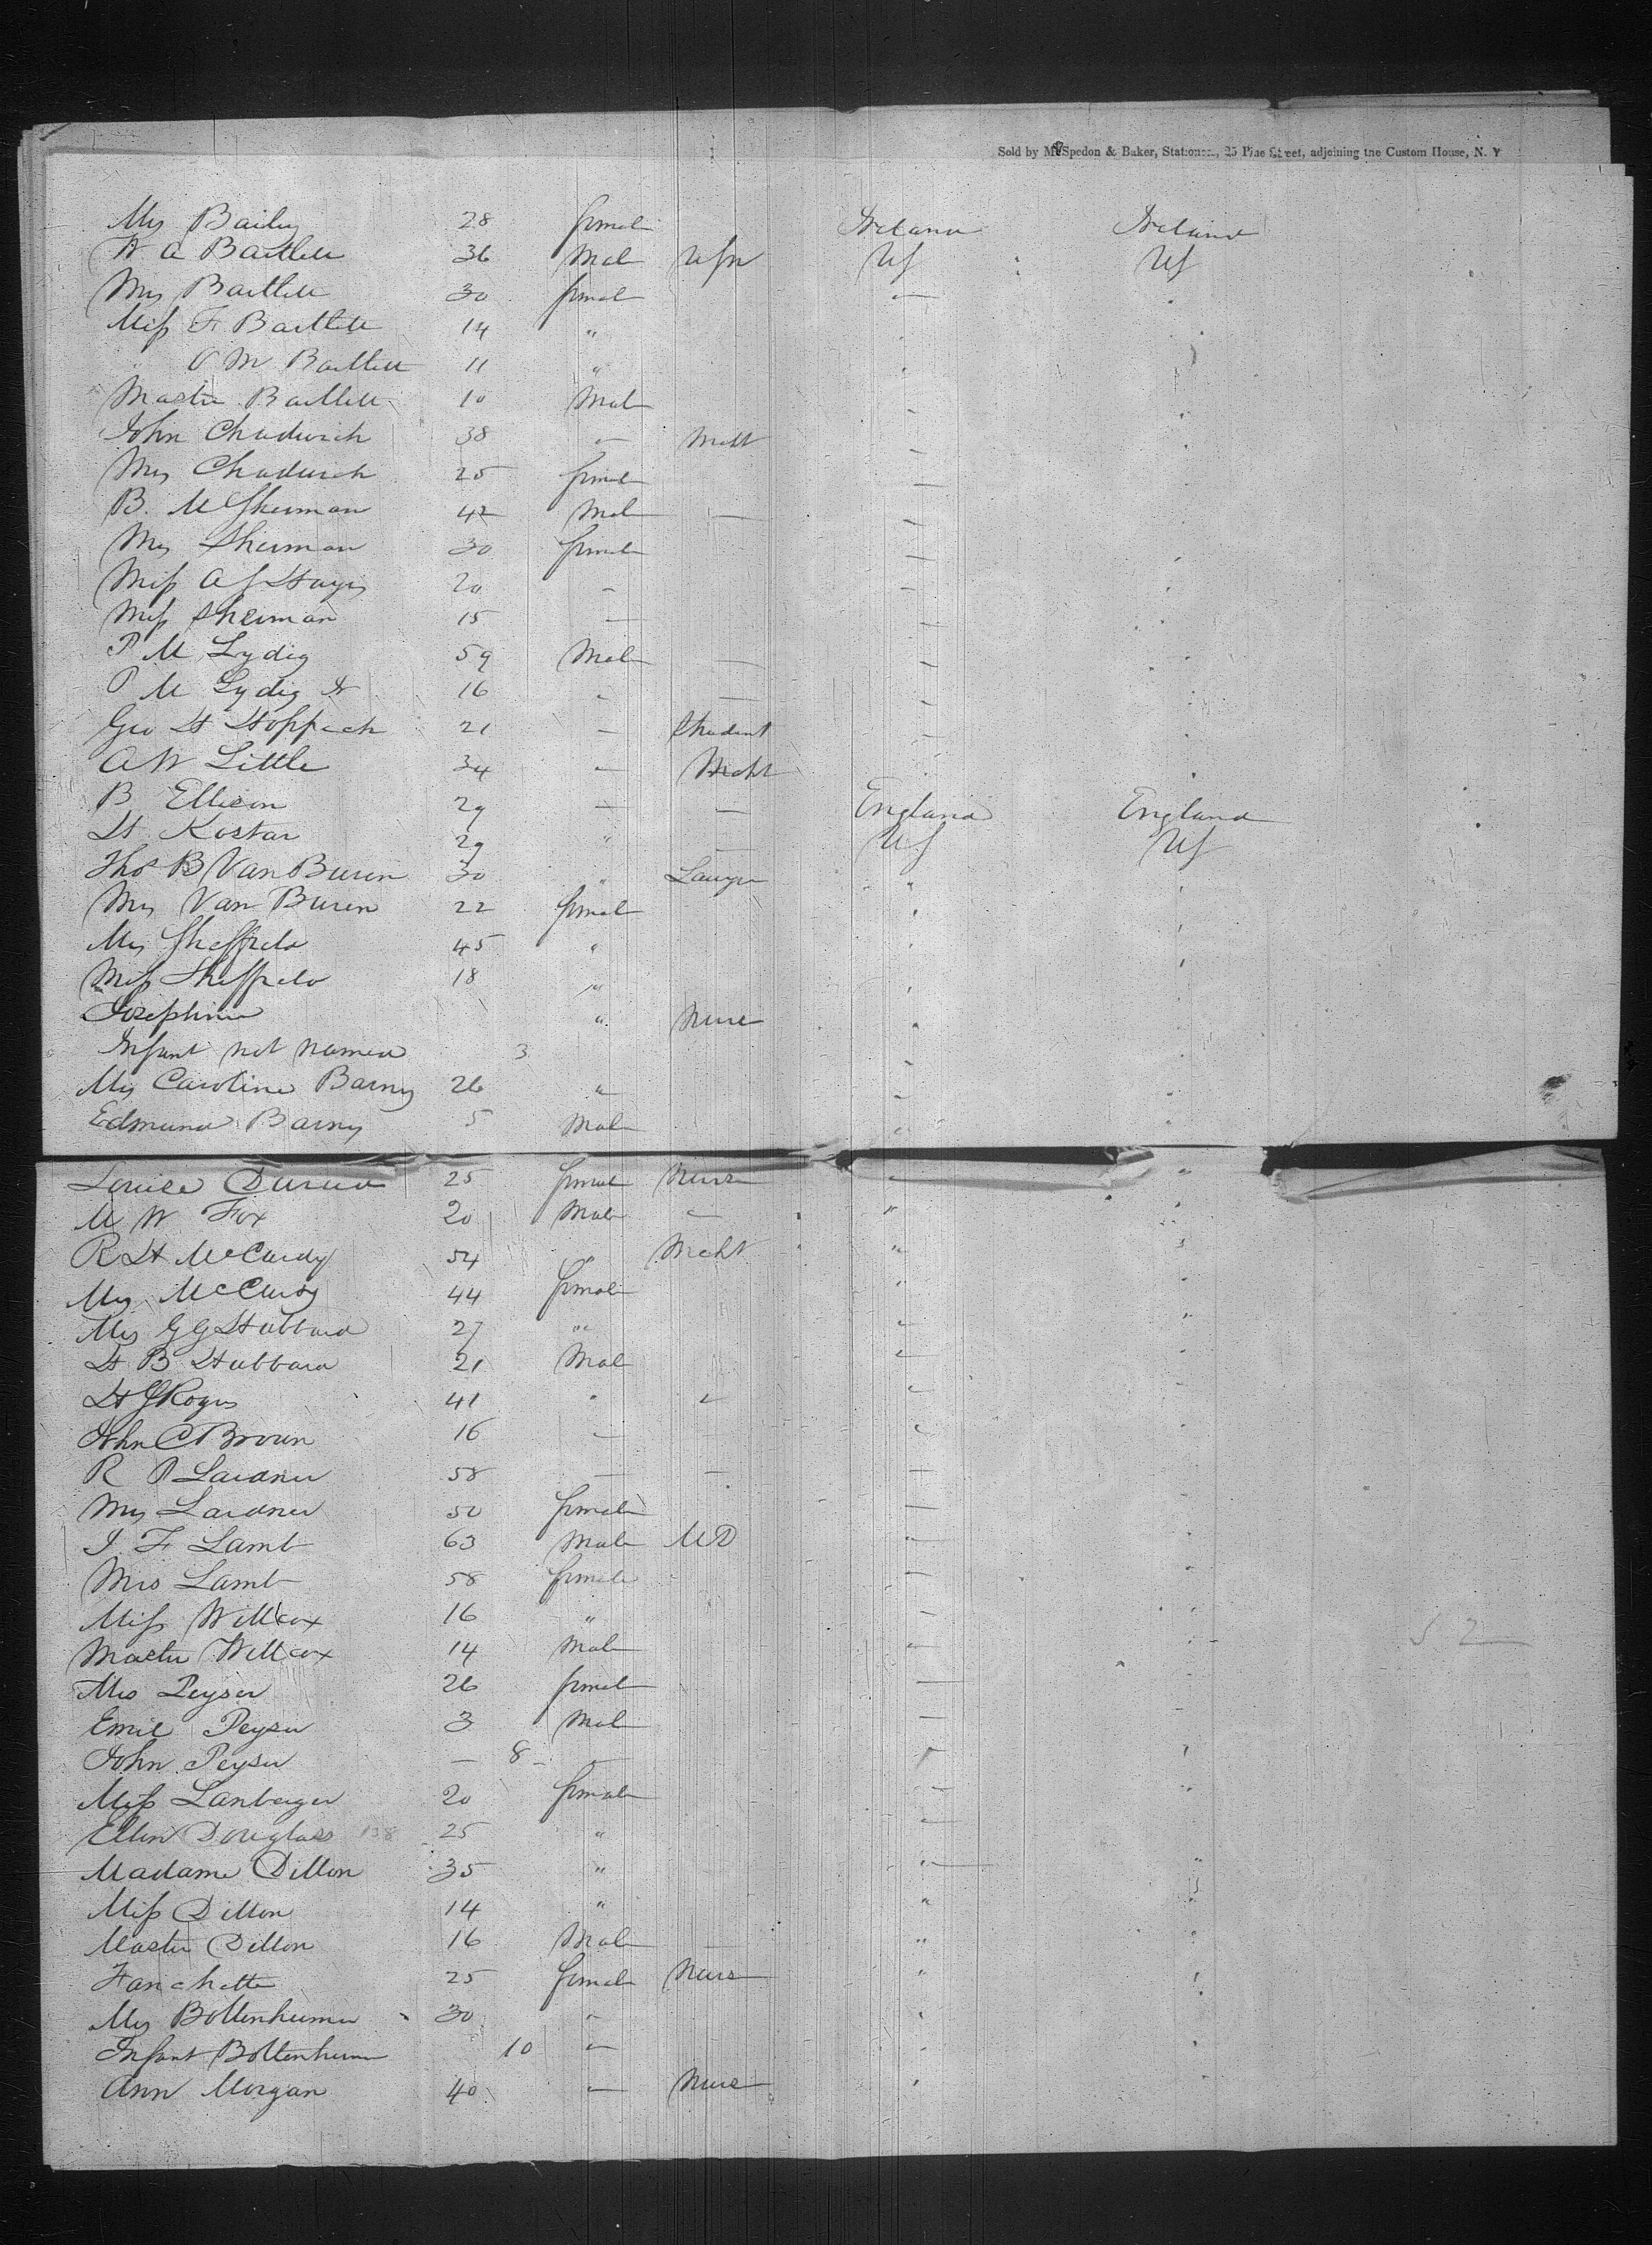 Sold by McSpedon & Baker, Stationers, 25 Pine Street, adjoining the Custom House, N. Y
Mrs Bailey 28 female Ireland Ireland
W A Bartlett 36 Male USN US US
Mrs Bartlett 30 female —
Miss F Bartlett 14 "
" M Bartlett 11 "
Master Bartlett 10 Male
John Chadwick 38 — Mcht
Mrs Chadwick 25 female —
B. M Sherman 42 Male — —
Mrs Sherman 30 female —
Miss A J Hayes 20 - —
Miss Sherman 15 — —
P M Lydig 59 Male — —
P M Lydig Jr 16 " —
Geo H Hoppock 21 — Student —
A W Little 34 — Mcht
B Ellison 29 — — England England
H Kostar 29 " — US US
Thos B Van Buren 30 " Lawyer "
Mrs Van Buren 22 female "
Mrs Sheffield 45 "
Miss Sheffield 18 "
Josephine " Nurse "
Infant not named 3
Mrs Caroline Barney 26 "
Edmund Barney 5 Male
Louise 25 female Nurse "
M W Fox 20 Male — "
R H McCurdy 54 " Mcht "
Mrs McCurdy 44 female "
Mrs G G Hubbard 27 " "
H B Hubbard 21 Male
H J Rogers 41 " "
John C Brown 16 —
R P Lardner 58 — — —
Mrs Lardner 50 female —
J. F Lamb 63 Male MD —
Mrs Lamb 58 female —
Miss Willcox 16 " —
Master Willcox 14 Male —
Mrs Peyser 26 female —
Emil Peyser 3 Male —
John Peyser — 8 - — "
Miss Lanberger 20 female —
Ellen Douglass 138 25 " —
Madame Dillon 35 " " "
Miss Dillon 14 " "
Master Dillon 16 Male — "
Fanchette 25 female Nurse "
Mrs Bottenheimer 30 " "
Infant Bottenheimer 10 "
Ann Morgan 40 — Nurse "
52